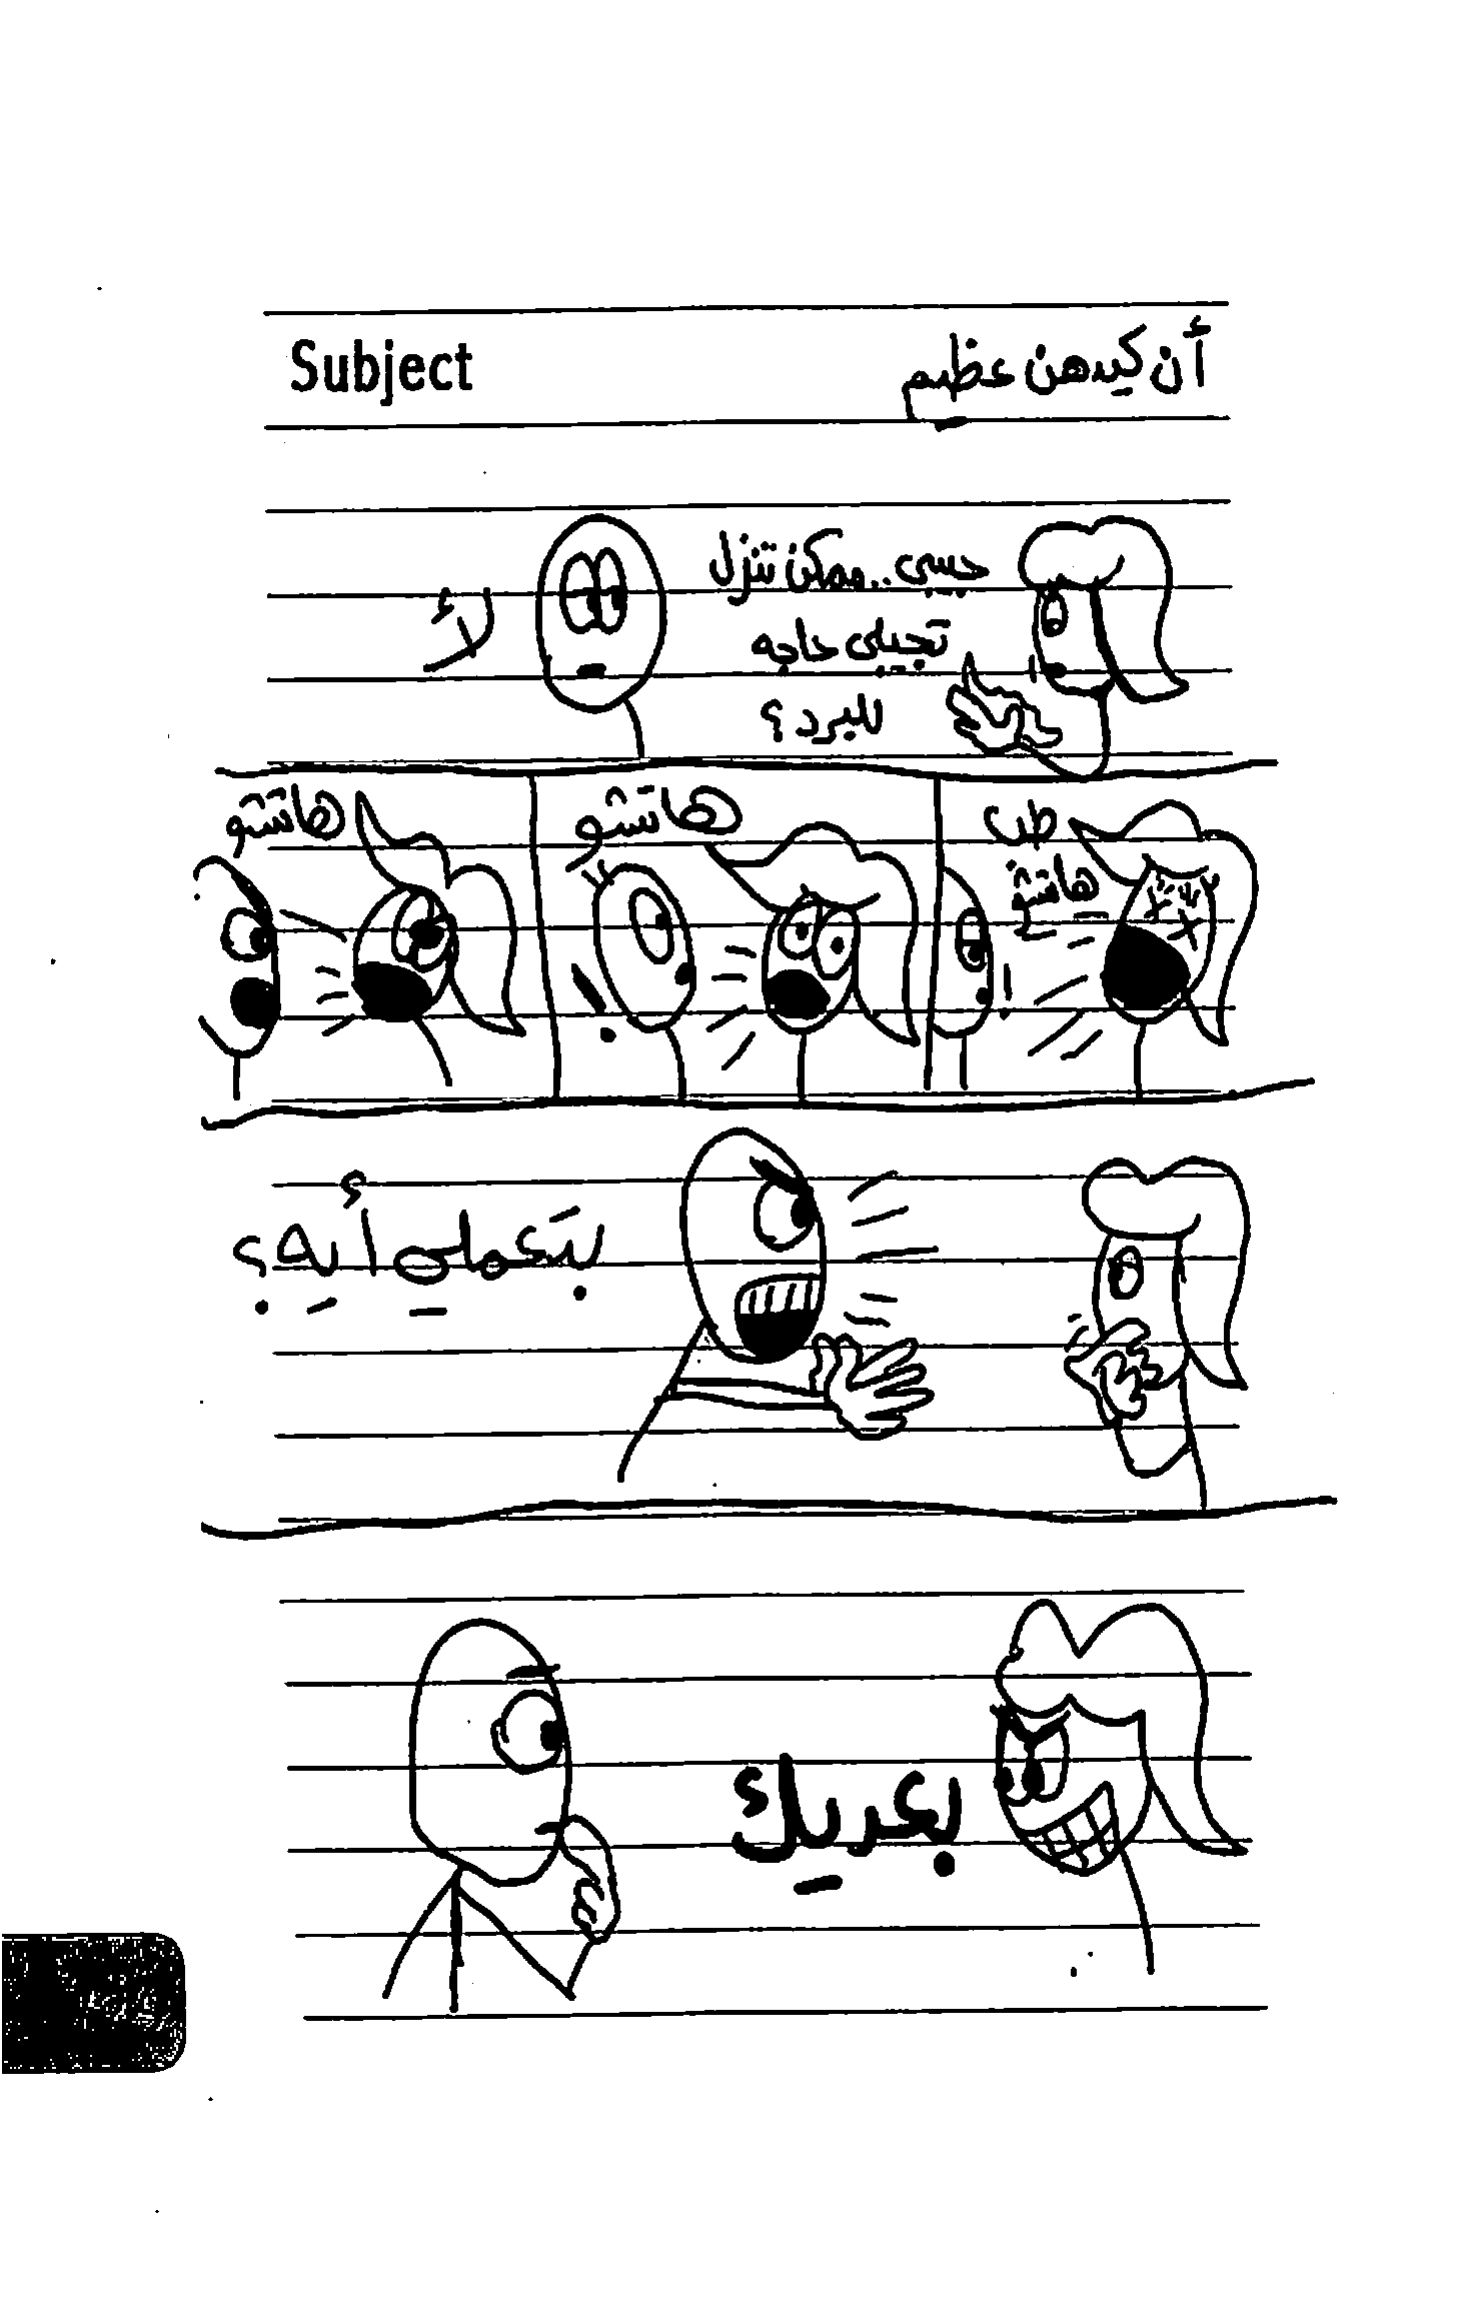 Subject
أن كيدهن عظيم
حبيبي.. ممكن تنزل
تجيبلي حاجه
للبرد؟
لأ
طب
هاتشو
هاتشو
هاتشو
بتعملي أيه؟
بعديك